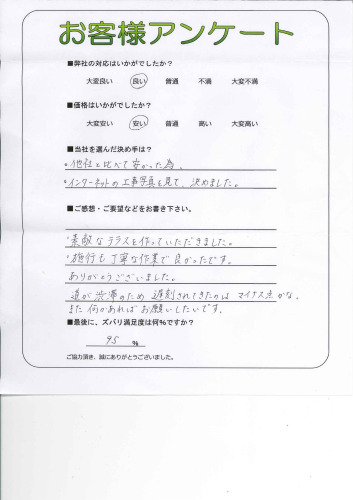 お客様アンケート
■弊社の対応はいかがでしたか?
大変良い 良い 普通 不満 大変不満
■価格はいかがでしたか?
大変安い 安い 普通 高い 大変高い
■当社を選んだ決め手は?
・他社と比べて安かった為。
・インターネットの工事写真を見て、決めました。
■ご感想・ご要望などをお書き下さい。
・素敵なテラスを作っていただきました。
・施行も丁寧な作業で良かったです。
ありがとうございました。
道が渋滞のため遅刻されてきたのはマイナス点かな。
また何かあればお願いしたいです。
■最後に、ズバリ満足度は何%ですか?
95 %
ご協力頂き、誠にありがとうございました。